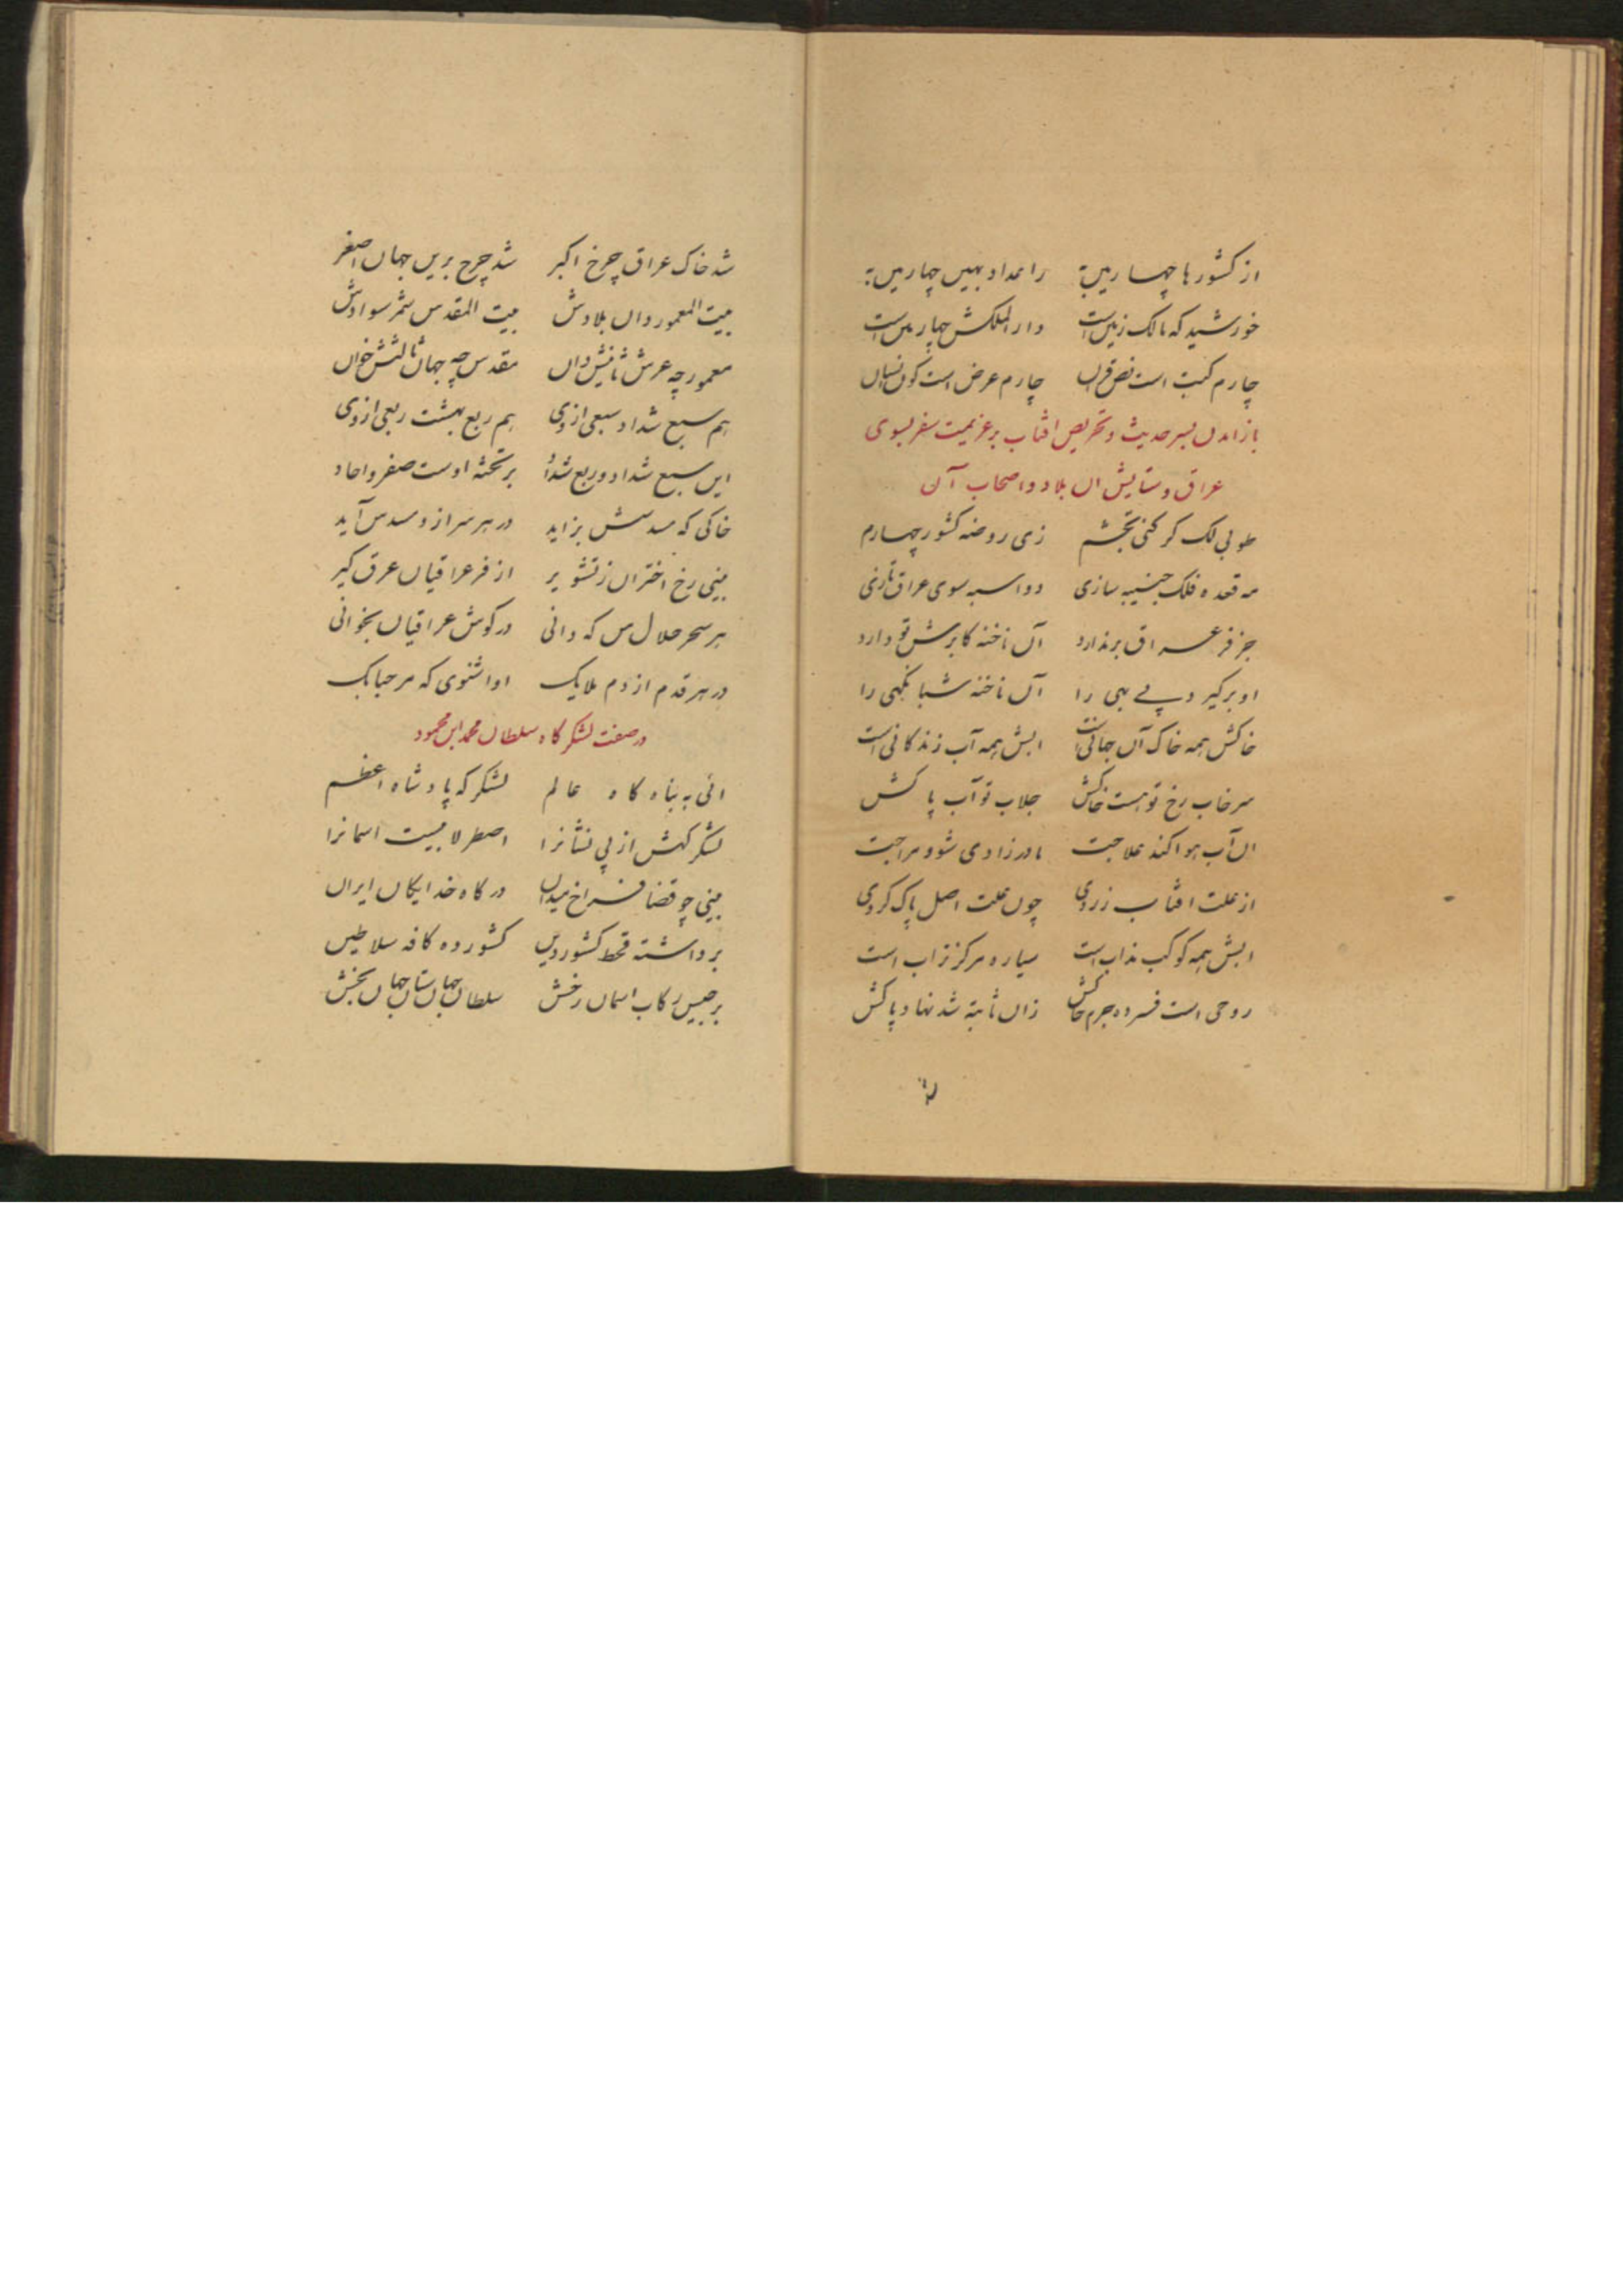 از کشورها چهارمین به زاعداد بهین چهارمین به
خورشید که مالک زمین است دار الملکش چهارمین است
چارم کتب است نص قرآن چارم عرض است کون انسان
باز امدن بسر حدیث و تحریص افتاب بر عزیمت سفر بسوی
عراق و ستایش ان بلاد و اصحاب آن
طوبی لک کر کنی تجشم زی روضه کشور چهارم
مه قعده فلک جنیبه سازی دو اسبه سوی عراق تازی
جز فر عراق برندارد آن ناخنه کابرش تو دارد
او برکیرد پی بهی را آن ناخنه شبانکهی را
خاکش همه خاک آن جهانی است ابش همه آب زندکانی است
سرخاب رخ تو هست خاکش جلاب تو آب پاکش
ان آب هوا کند علاجت مادرزادی شود مزاجت
از علت افتاب زردی چون علت اصل پاک کردی
ابش همه کوکب مذاب است سیاره مرکز تراب است
روحی است فسرده جرم خاکش زان ثابته شد نهاد پاکش
شد خاک عراق چرخ اکبر شد چرخ برین جهان اصغر
بیت المعمور دان بلادش بیت المقدس شمر سوادش
معمور چه عرش ثانیش دان مقدس چه جهان ثالثش خوان
هم سبع شداد سبعی از وی هم ربع بهشت ربعی از وی
این سبع شداد و ربع شداد بر تخته اوست صفر و احاد
خاکی که مسدسش بزاید در هر سر از و مسدس آید
بینی رخ اختران ز تشویر از فر عراقیان عرق کیر
هر سحر حلال من که دانی در کوش عراقیان بخوانی
در هر قدم از دم ملایک اوا شنوی که مرحبا بک
در صفت لشکر کاه سلطان محمد ابن محمود
ائی به پناه کاه عالم لشکر که پادشاه اعظم
لشکر کهش از پی نشانرا اصطرلابیست اسمانرا
بینی چو قضا فراخ میدان در کاه خدایکان ایران
برداشته قحط کشور دین کشورده کافه سلاطین
برجیس رکاب اسمان رخش سلطان جهان ستان جهان بخش